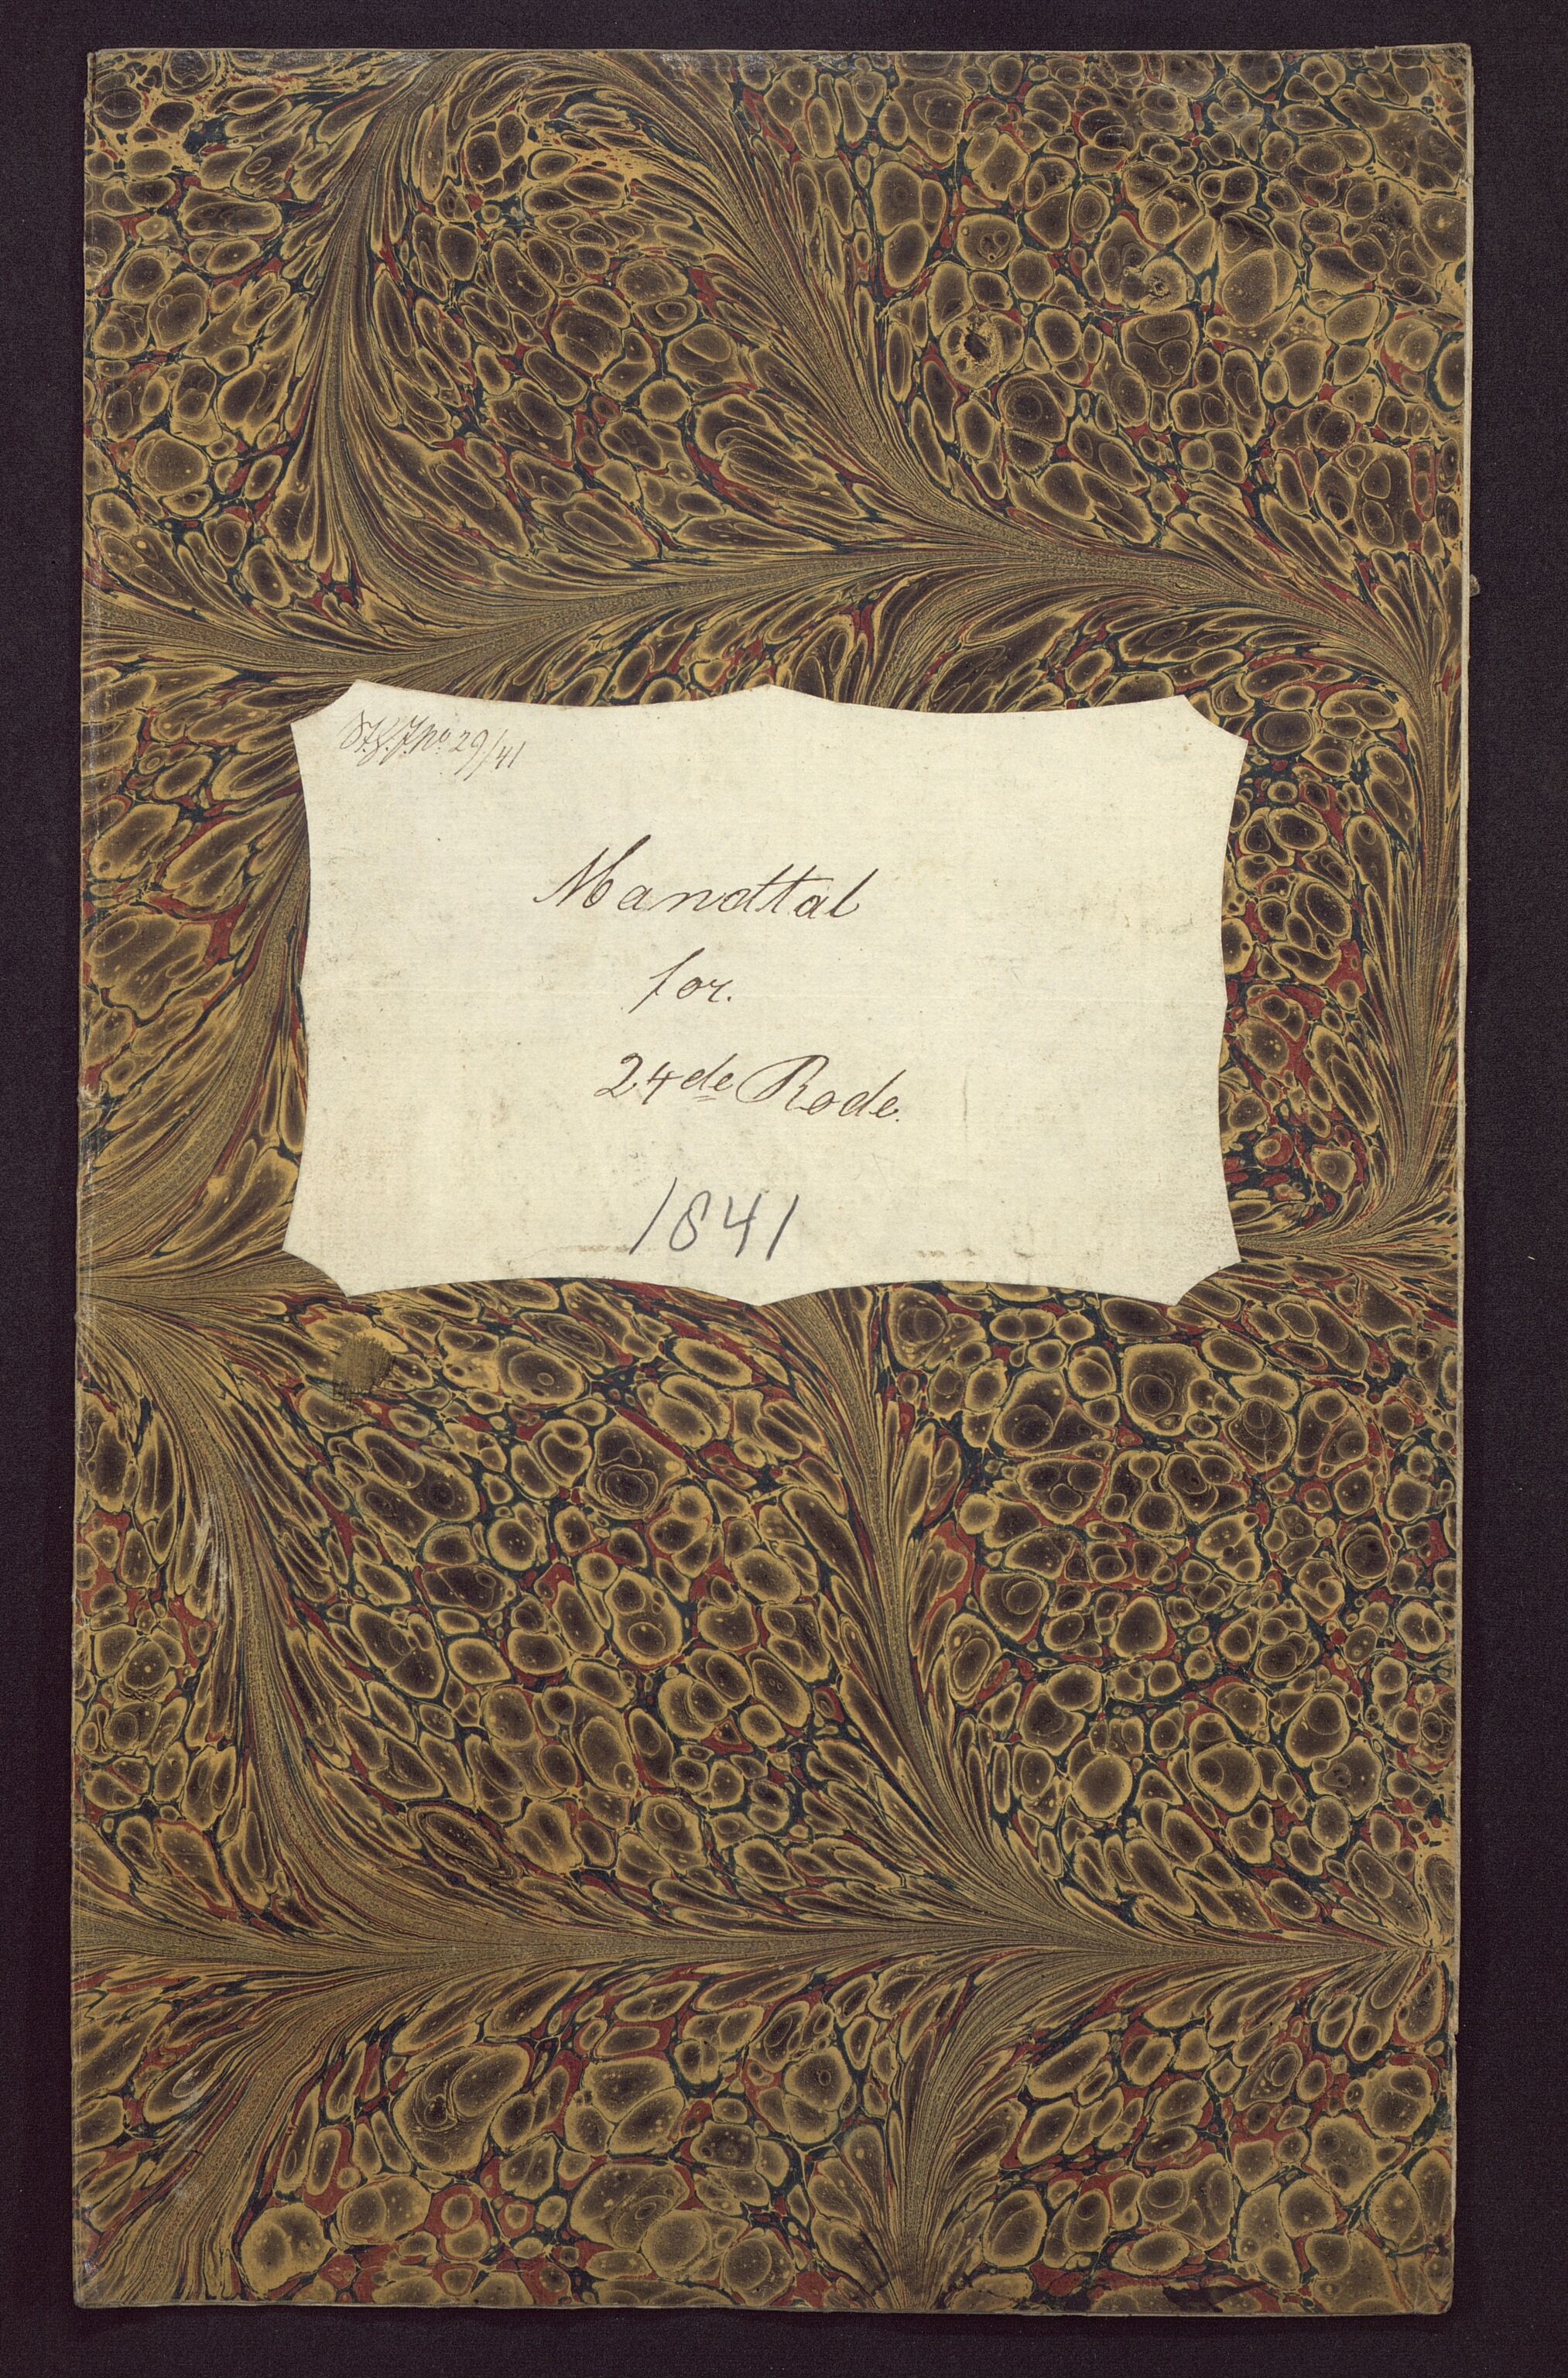 No 29/41
Mandttal
for.
24de Rode.
1841